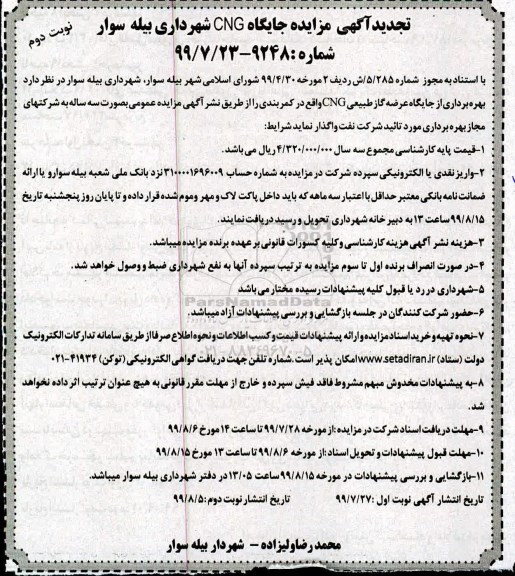 تجدید آگهی مزایده جایگاه CNG شهرداری بیله سوار
نوبت دوم
شماره: ۹۲۴۸-۹۹/۷/۲۳
با استناد به مجوز شماره ۵/۲۸۵/ش ردیف ۲ مورخه ۹۹/۴/۳۰ شورای اسلامی شهر بیله سوار، شهرداری بیله سوار در نظر دارد
بهره برداری از جایگاه عرضه گاز طبیعی CNG واقع در کمربندی را از طریق نشر آگهی مزایده عمومی بصورت سه ساله به شرکتهای
مجاز بهره برداری مورد تائید شرکت نفت واگذار نماید شرایط:
۱-قیمت پایه کارشناسی مجموع سه سال ۴/۳۲۰/۰۰۰/۰۰۰ ریال می باشد.
۲-واریز نقدی یا الکترونیکی سپرده شرکت در مزایده به شماره حساب ۳۱۰۰۰۰۱۶۹۶۰۰۹ نزد بانک ملی شعبه بیله سوار و یا ارائه
ضمانت نامه بانکی معتبر حداقل با اعتبار سه ماهه که باید داخل پاکت لاک و مهر و موم شده قرار داده و تا پایان روز پنجشنبه تاریخ
۹۹/۸/۱۵ ساعت ۱۳ به دبیر خانه شهرداری تحویل و رسید دریافت نمایند.
۳-هزینه نشر آگهی هزینه کارشناسی و کلیه کسورات قانونی بر عهده برنده مزایده میباشد.
۴-در صورت انصراف برنده اول تا سوم مزایده به ترتیب سپرده آنها به نفع شهرداری ضبط و وصول خواهد شد.
۵-شهرداری در رد یا قبول کلیه پیشنهادات رسیده مختار می باشد
۶-حضور شرکت کنندگان در جلسه بازگشایی و بررسی پیشنهادات آزاد میباشد.
ParsNamadData
۷-نحوه تهیه و خرید اسناد مزایده و ارائه پیشنهادات قیمت و کسب اطلاعات و نحوه اطلاع صرفا از طریق سامانه تدارکات الکترونیک
دولت (ستاد) www.setadiran.ir امکان پذیر است. شماره تلفن جهت دریافت گواهی الکترونیکی (توکن) ۴۱۹۳۴-۰۲۱
۸-به پیشنهادات مخدوش مبهم مشروط فاقد فیش سپرده و خارج از مهلت مقرر قانونی به هیچ عنوان ترتیب اثر داده نخواهد
شد.
۹-مهلت دریافت اسناد شرکت در مزایده: از مورخه ۹۹/۷/۲۸ تا ساعت ۱۴ مورخ ۹۹/۸/۶
۱۰-مهلت قبول پیشنهادات و تحویل اسناد: از مورخه ۹۹/۸/۶ تا ساعت ۱۳ مورخ ۹۹/۸/۱۵
۱۱-بازگشایی و بررسی پیشنهادات در مورخه ۹۹/۸/۱۵ ساعت ۱۳/۰۵ در دفتر شهرداری بیله سوار میباشد.
تاریخ انتشار آگهی نوبت اول: ۹۹/۷/۲۷ تاریخ انتشار نوبت دوم: ۹۹/۸/۵
محمدرضا ولیزاده - شهردار بیله سوار